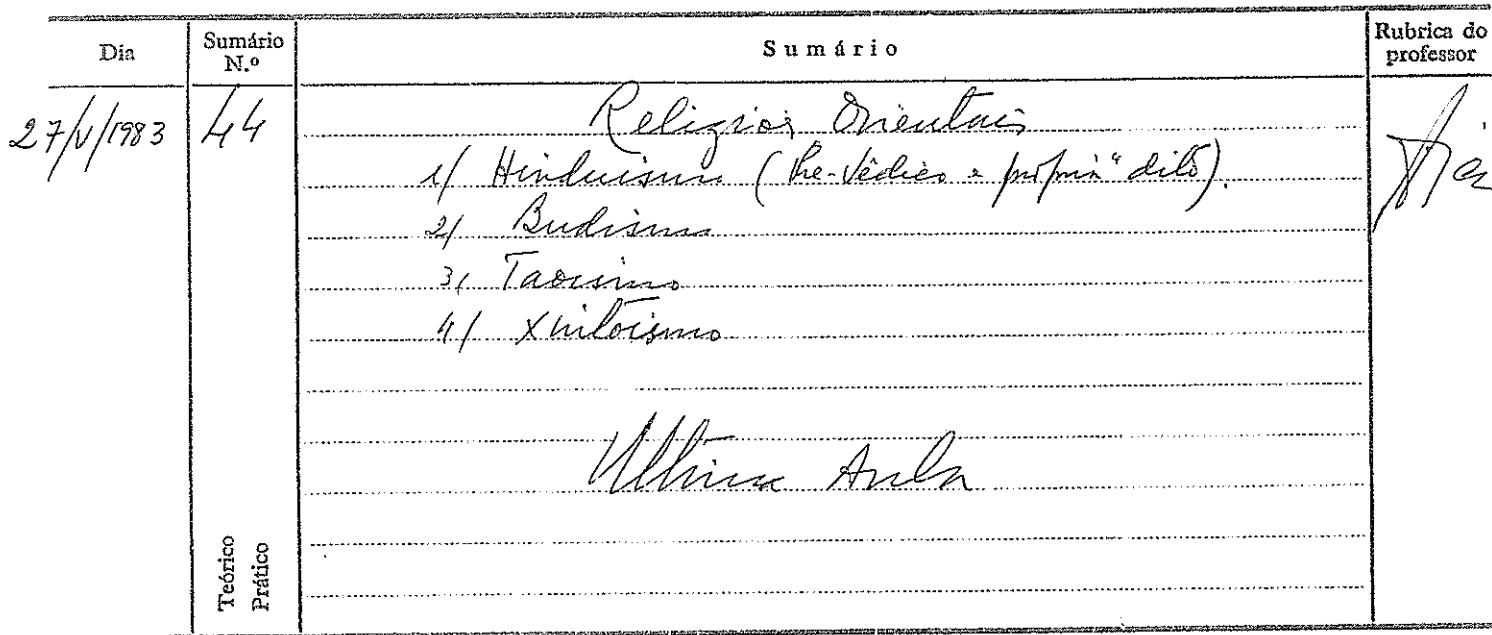 Dia Sumário N.º Sumário Rubrica do professor
27/V/1983 44 Religiões Orientais
1/ Hinduismo (Pre-Védico e própria" dito).
2/ Budismo
3/ Taoismo
4/ Xintoísmo
Última Aula
Teórico
Prático